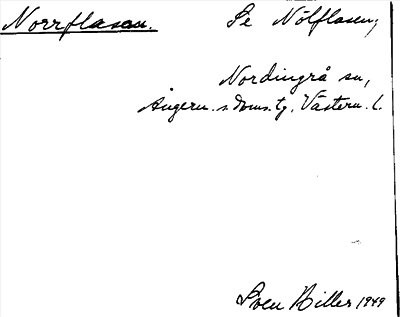 Norrflasan. Se Nölflasen,
Nordingrå sn,
Ångerm. s. doms. tg. Västern. l.
Sven Hiller 1949